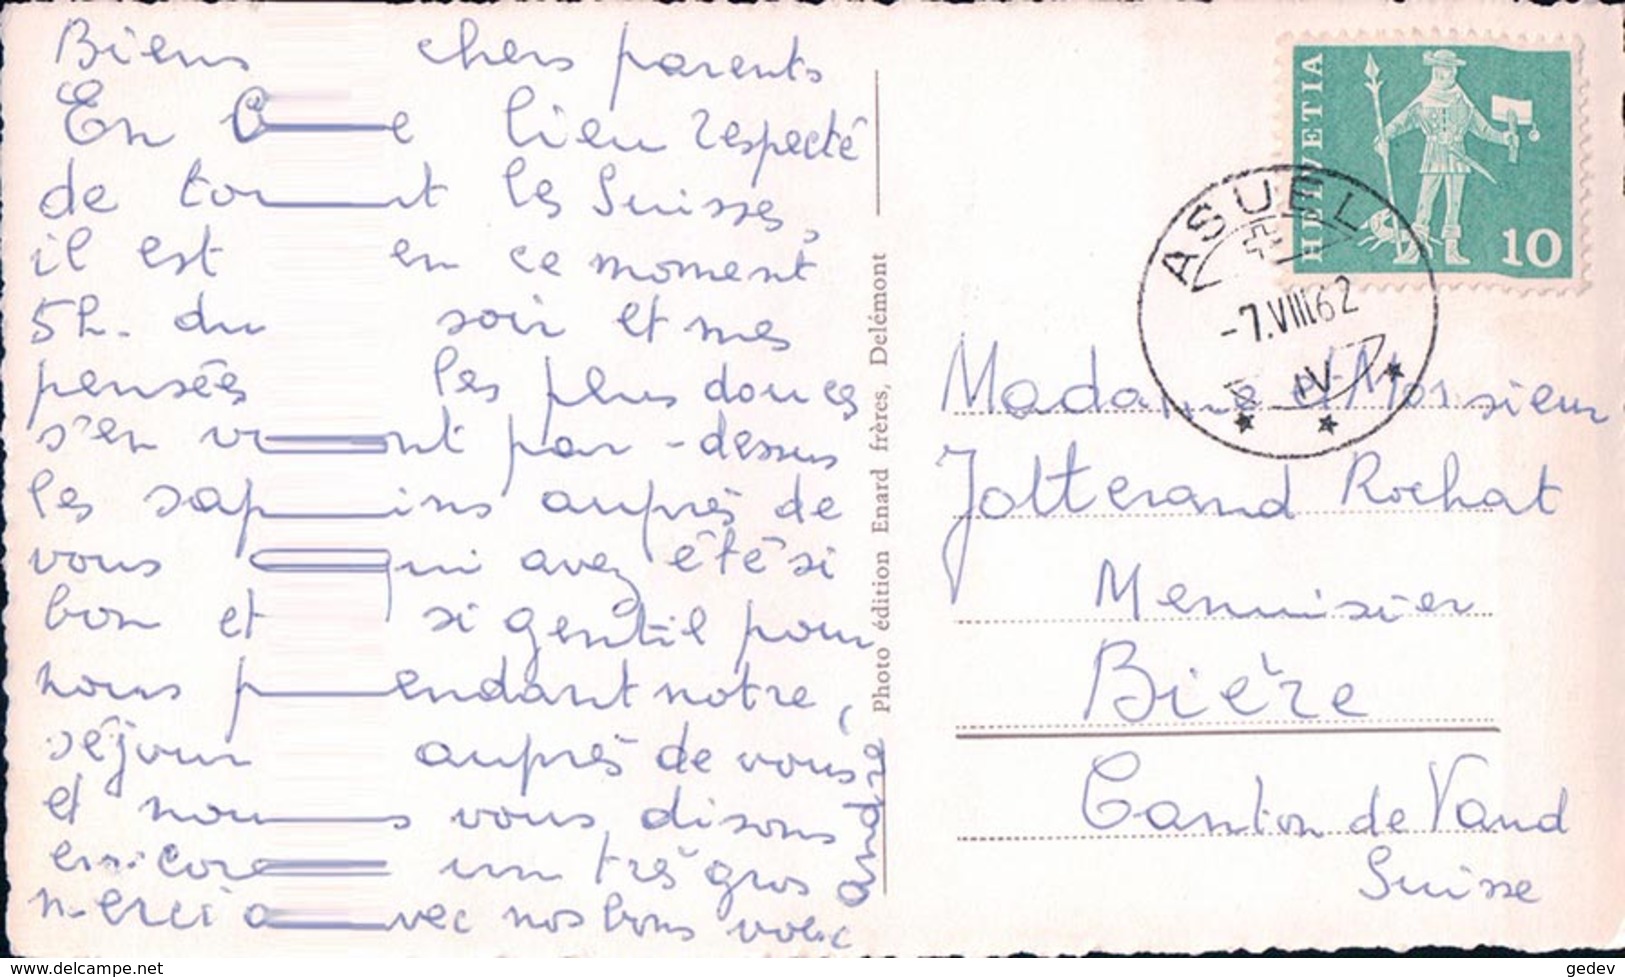 Biens chers parents
En ce lieu respecté
de tout les Suisses,
il est en ce moment
5h. du soir et mes
pensées les plus douces
s'en vont par-dessus
les sapins auprès de
vous qui avez été si
bon et si gentil pour
nous pendant notre
séjour auprès de vous
et nous vous disons
encore un très gros
merci avec nos bons
André
Photo édition Enard frères, Delémont
HELVETIA
10
ASUEL
-7.VIII.62
Madame et Monsieur
Jotterand Rochat
Menuisier
Bière
Canton de Vaud
Suisse
gedev